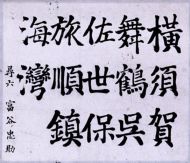 橫須賀
舞鶴呉
佐世保
旅順鎮
海灣
尋六 富谷忠助